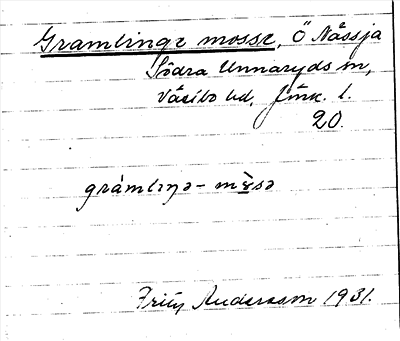 Gramlinge mosse, Ö Nässja
Södra Unnaryds sn,
Västbo hd, Jönk. l.
20.
gràmlıŋə - mɤ̀sə
Fritz Andersson 1931.